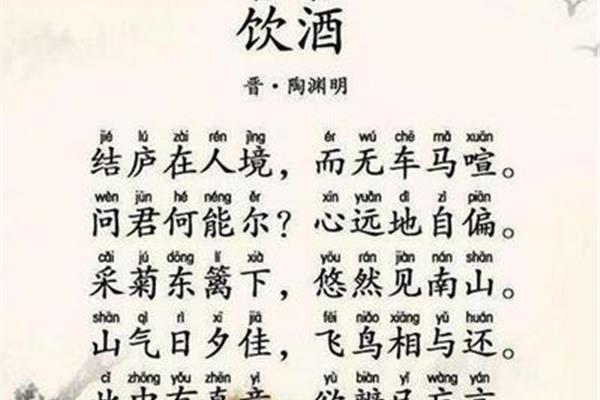 饮酒
晋·陶渊明
jié lú zài rén jìng ér wú chē mǎ xuān
结庐在人境，而无车马喧。
wèn jūn hé néng ěr xīn yuǎn dì zì piān
问君何能尔？心远地自偏。
cǎi jú dōng lí xià yōu rán jiàn nán shān
采菊东篱下，悠然见南山。
shān qì rì xī jiā fēi niǎo xiāng yǔ huán
山气日夕佳，飞鸟相与还。
cǐ zhōng yǒu zhēn yì yù biàn yǐ wàng yán